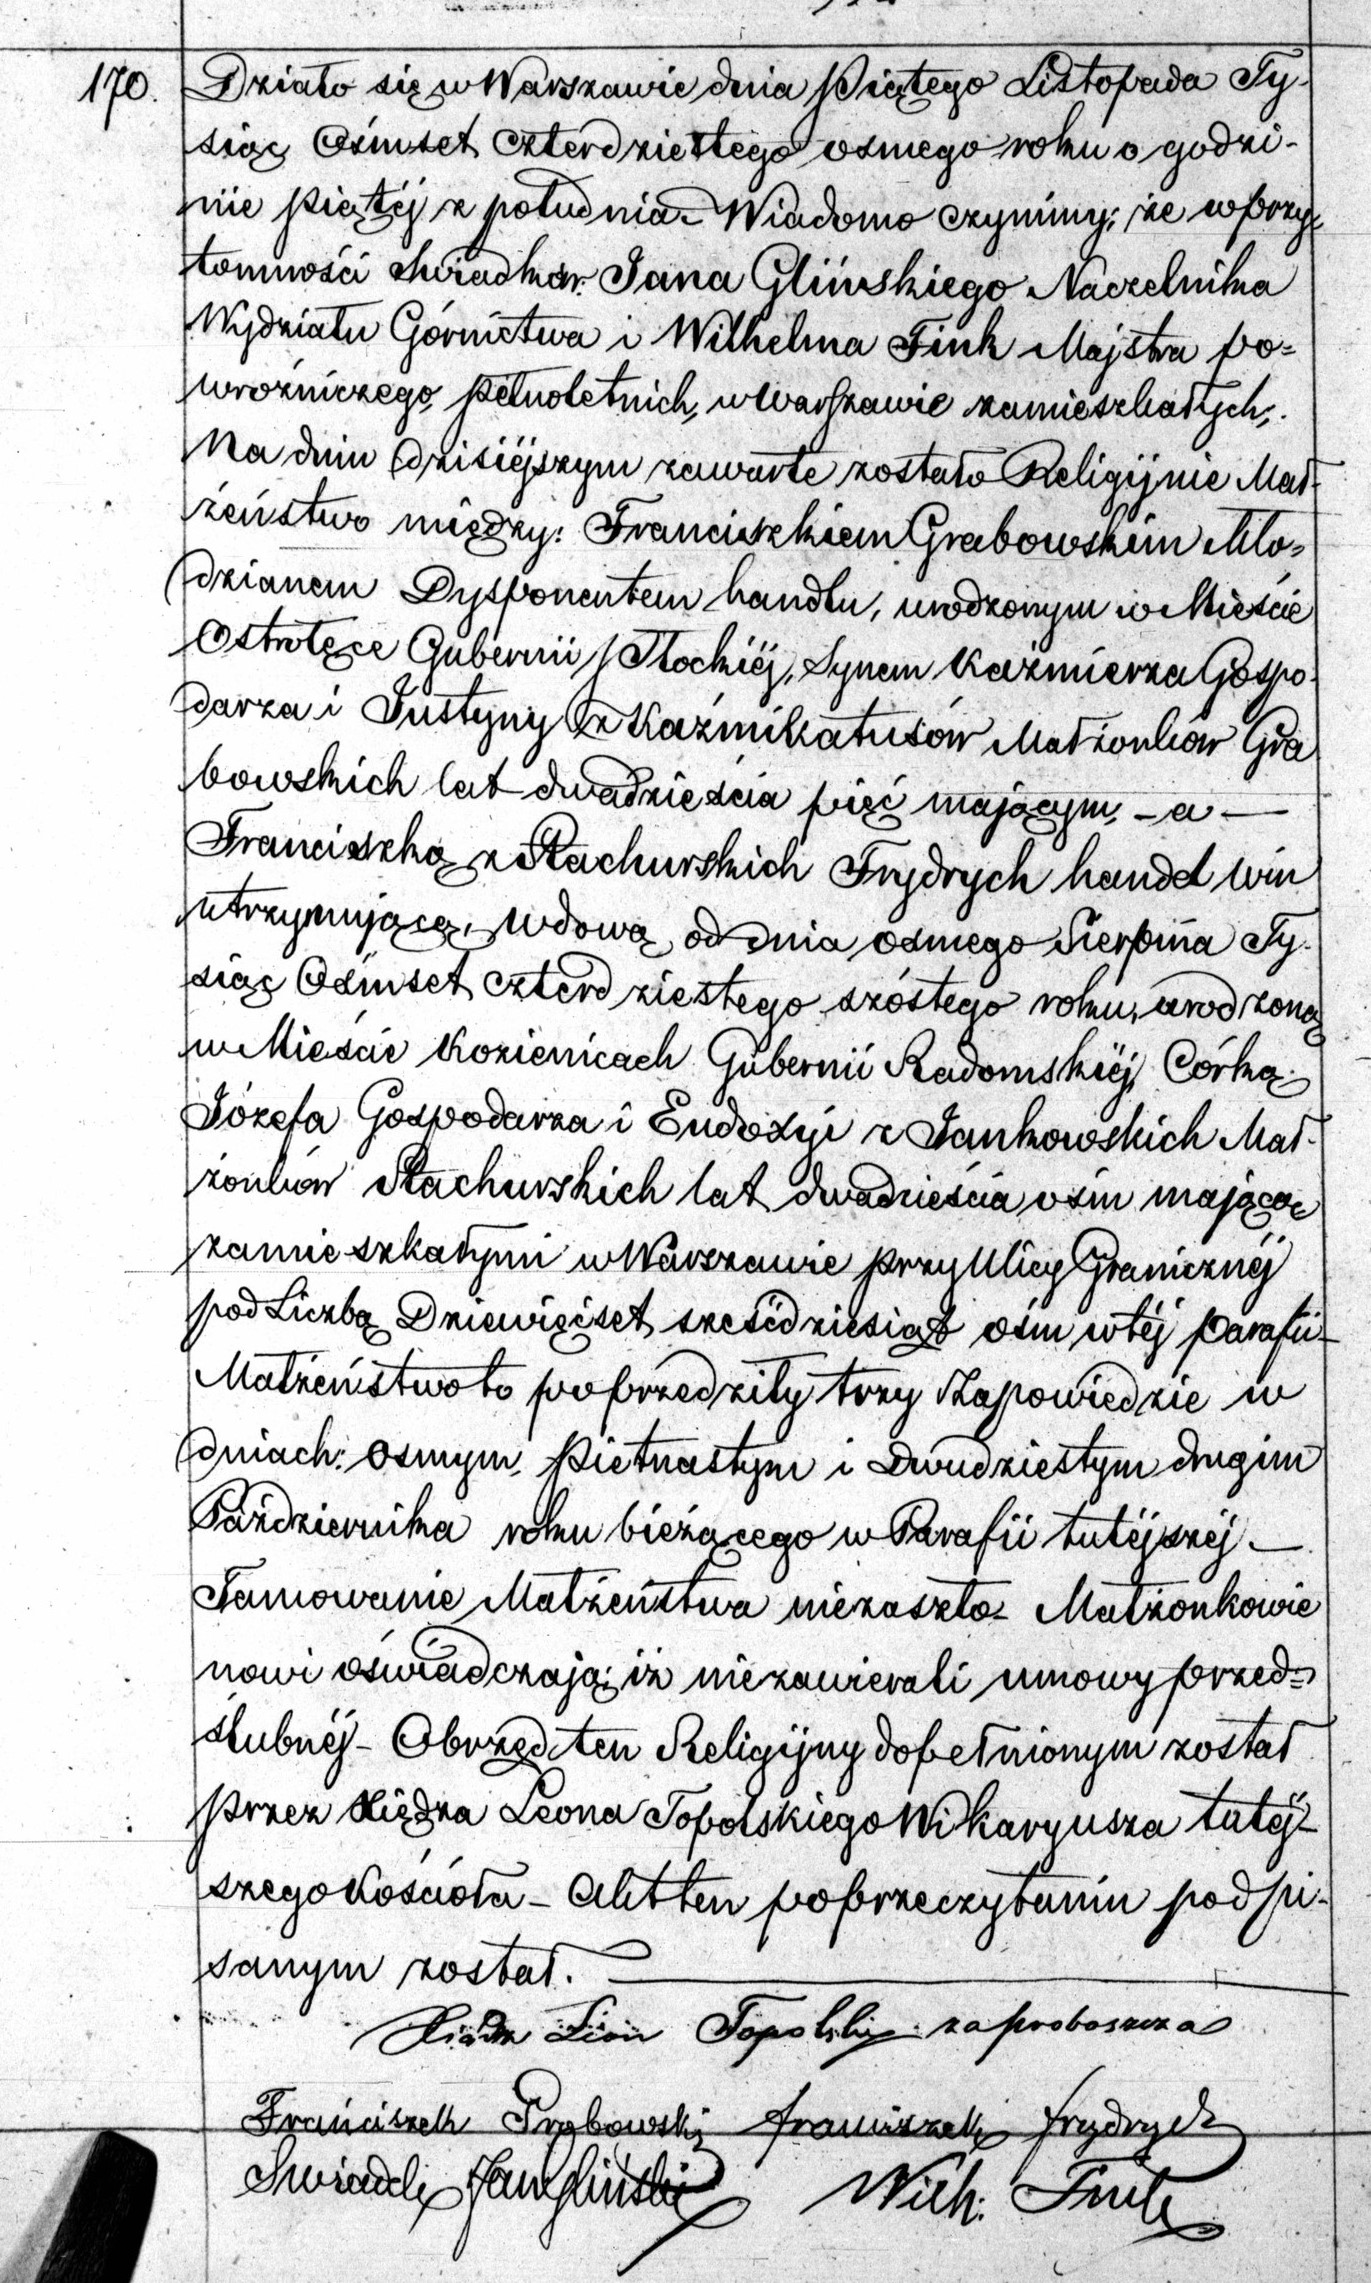 170. Działo się w Warszawie dnia Piątego Listopada Ty-
siąc Ośmset czterdziestego osmego roku o godzi-
nie piątéj z południa - Wiadomo czynimy; że w przy-
tomności Swiadków. Jana Glińskiego Naczelnika
Wydziału Górnictwa i Wilhelma Fink Majstra po=
wroźniczego, pełnoletnich, w Warszawie zamieszkałych;.
Na dniu dzisiéjszym zawarte zostało Religijnie Mał-
żeństwo między: Franciszkiem Grabowskim Mło=
dzianem Dysponentem handlu, urodzonym w Mieście
Ostrołęce Gubernii Płockiéj, Synem Kaźmierza Gospo-
darza i Justyny z Kaźmikatusów Małżonków Gra
bowskich lat dwadzieścia pięć mającym, - a -
Franciszką z Stachurskich Frydrych handel win
utrzymującą, wdową od dnia osmego Sierpnia Ty-
siąc Ośmset czterdziestego szóstego roku, urodzoną
w Mieście Kozienicach Gubernii Radomskiéj, Córką
Józefa Gospodarza i Eudoxyi z Jankowskich Mał-
żonków Stachurskich lat dwadzieścia ośm mającą
zamieszkałymi w Warszawie przy Ulicy Granicznéj
pod Liczbą Dziewięćset sześćdziesiąt ośm w téj parafii -
Małżeństwo to poprzedziły trzy Zapowiedzie w
dniach: osmym, piętnastym i Dwudziestym drugim
Października roku bieżącego w Parafii tutéjszéj. -
Tamowanie Małżeństwa niezaszło - Małżonkowie
nowi oświadczają; iż niezawierali umowy przed=
ślubnéj - Obrzęd ten Religijny dopełnionym został
przez Xiędza Leona Topolskiego Wikaryusza tutéj-
szego Kościoła - Akt ten po przeczytaniu podpi-
sanym został.
Xiądz Leon Topolski za proboszcza
Franciszek Grabowski Franciszka Frydrych
Swiadek Jan Gliński Wilh. Fink